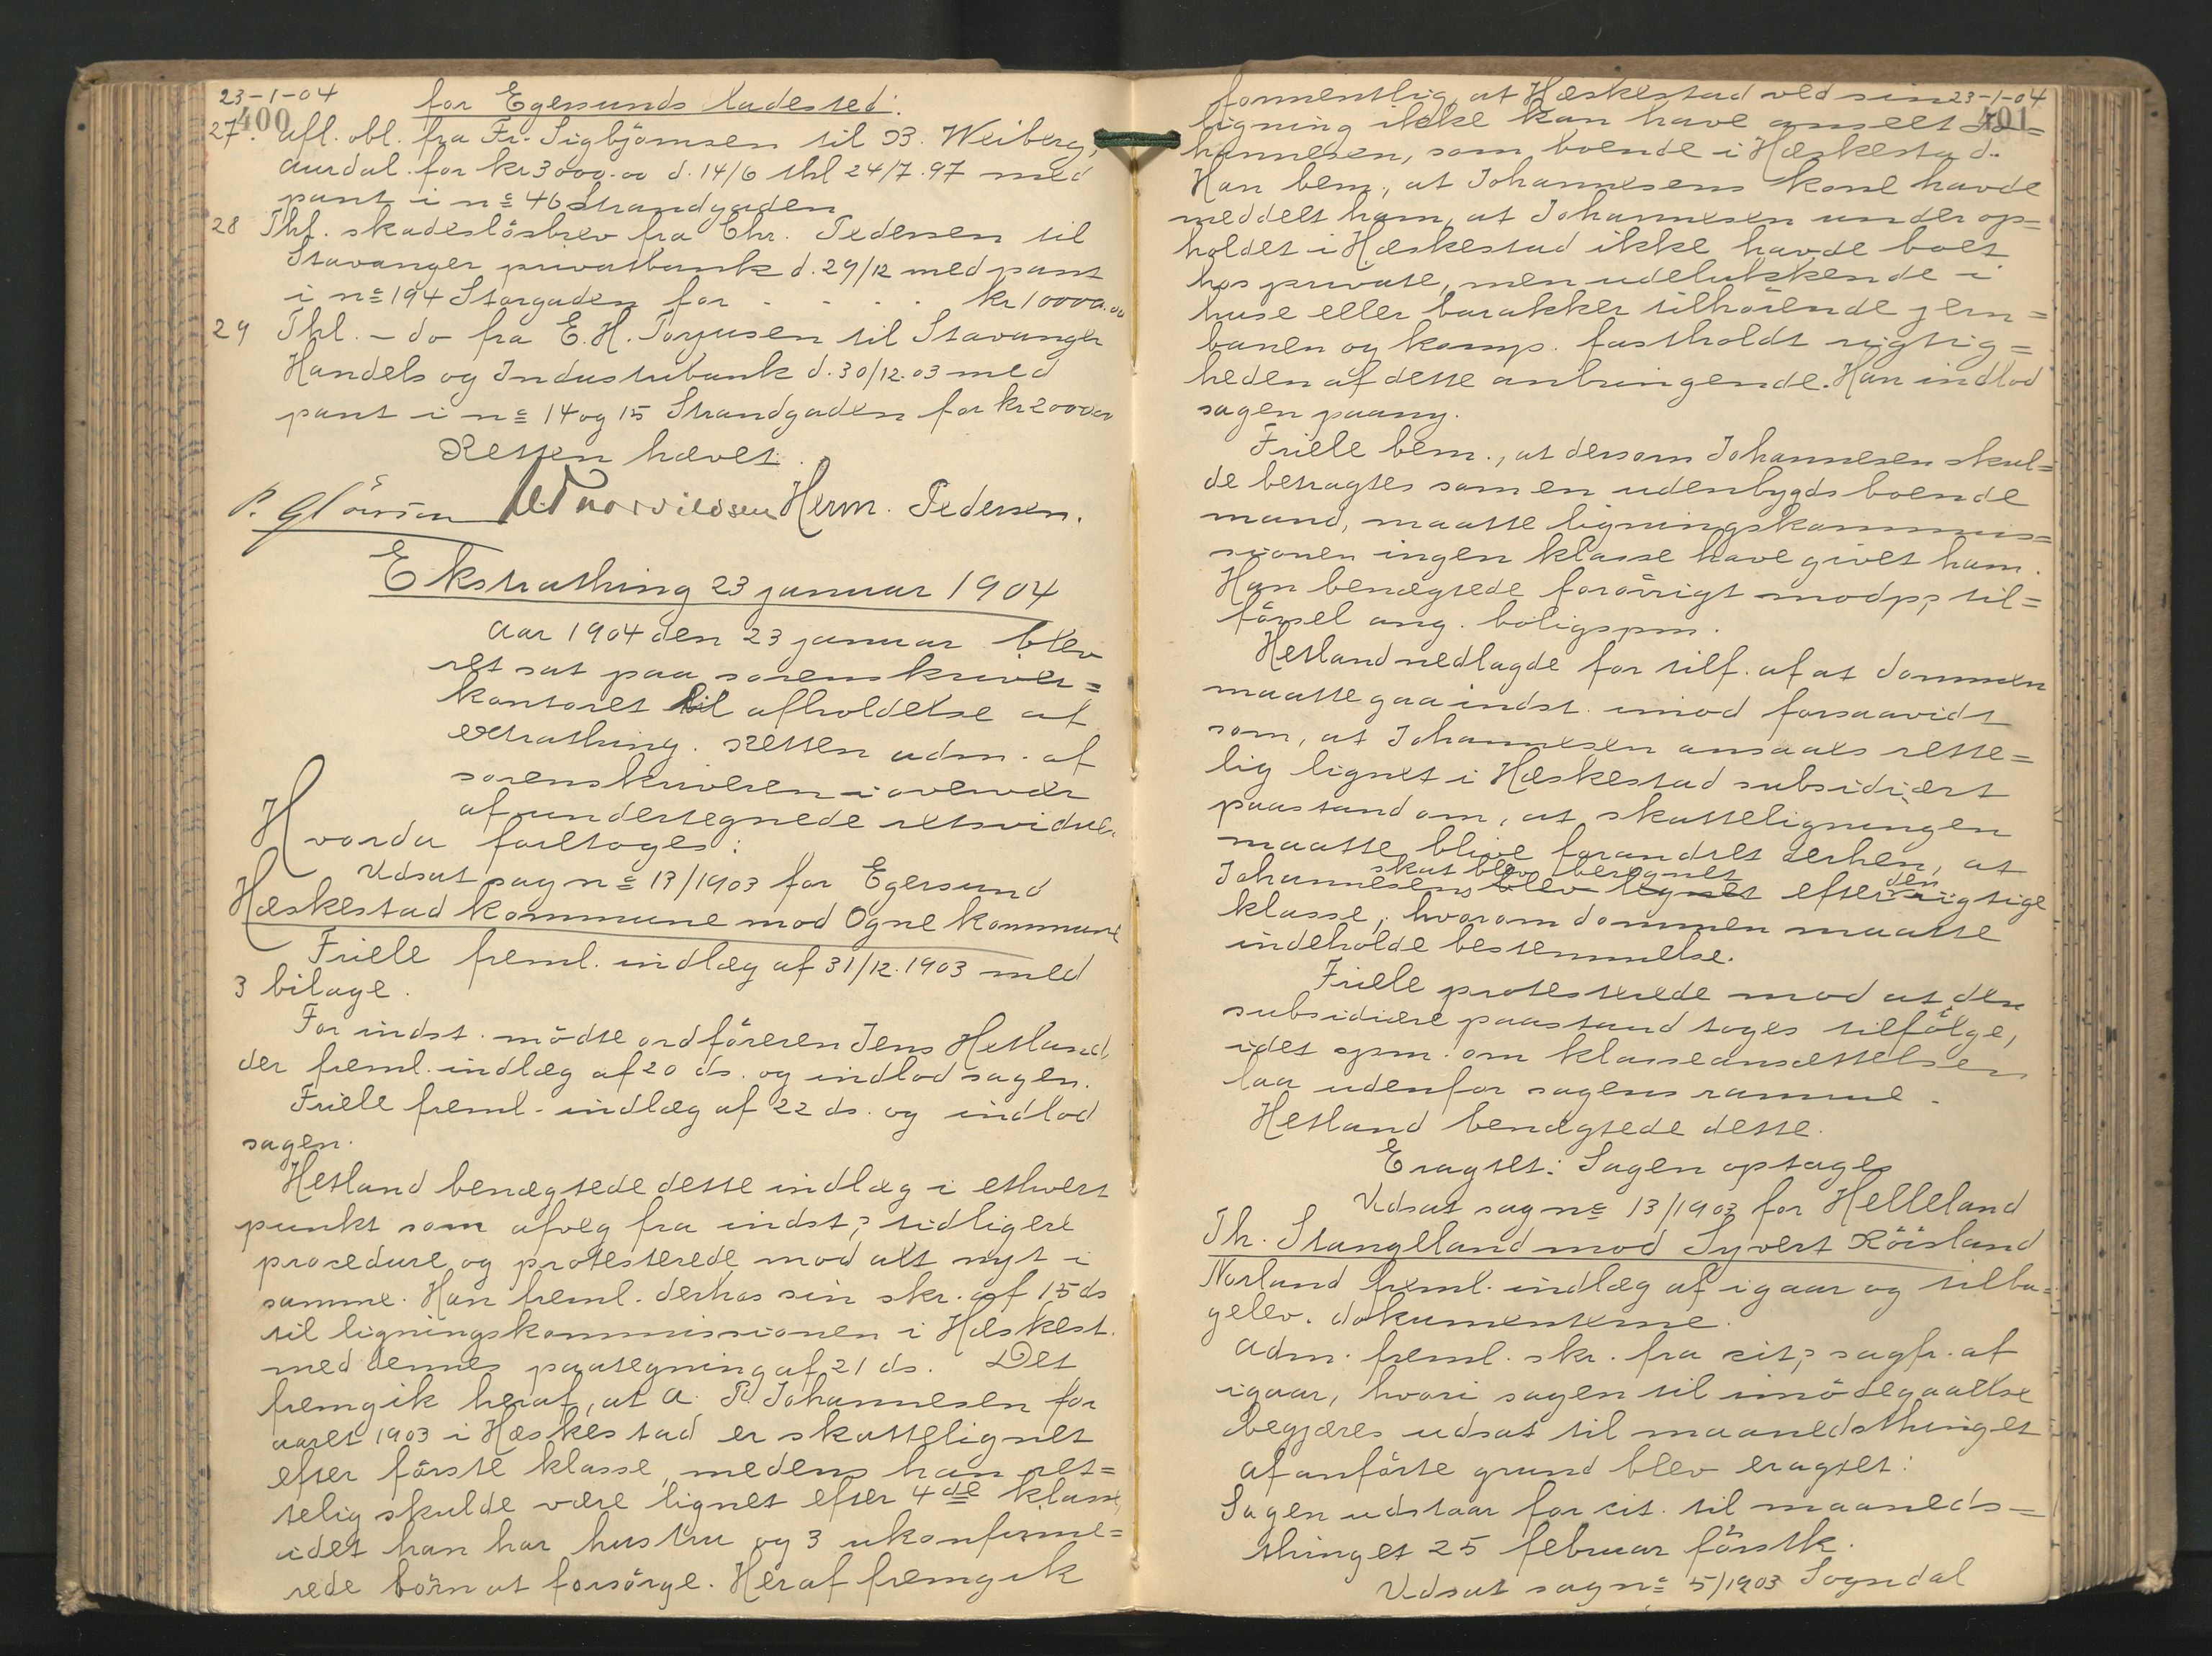 23-1-04
400
for Egersunds ladested:
27. Afl. obl. fra Fr. Sigbjörnsen til B. Weiberg,
Aurdal for kr 3000.00 d. 14/6 thl 24/7. 97 med
pant i no 46 Strandgaden
28 Thl. skadeslösbrev fra Chr. Pedersen til
Stavanger privatbank d. 29/12 med pant
i no 194 Storgaden for . . . . kr 10000.00
29 Thl. - do fra E. H. Torjusen til Stavanger
Handels og Industribank d. 30/12.03 med
pant i no 14 og 15 Strandgaden for kr 2000.00
Retten hævet.
Herm. Pedersen.
Ekstrathing 23 januar 1904
Aar 1904 den 23 januar blev
ret sat paa sorenskriver=
kontoret til afholdelse af
extrathing. Retten adm. af
sorenskriveren i overvær
af undertegnede retsvidner.
Hvorda foretoges:
Udsat sag no 13/1903 for Egersund
Heskestad kommune mod Ogne kommune
Friele freml. indlæg af 31/12.1903 med
3 bilage.
For indst. mödte ordföreren Jens Hetland,
der freml. indlæg af 20 ds. og indlod sagen.
Friele freml. indlæg af 22 ds. og indlod
sagen.
Hetland benægtede dette indlæg i ethvert
punkt som afveg fra indst.s tidligere
procedure og protesterede mod alt nyt i
samme. Han freml. derhos sin skr. af 15 ds
til ligningskommissionen i Heskest.
med dennes paategning af 21 ds. Det
fremgik heraf, at A. P. Johannesen for
aaret 1903 i Heskestad er skattelignet
efter förste klasse, medens han ret=
telig skulde være lignet efter 4de klasse,
idet han har hustru og 3 ukonfirme=
rede börn at forsörge. Heraf fremgik
23-1-04
401
formentlig, at Heskestad ved sin
ligning ikke kan have anseet Jo=
hannesen, som boende i Heskestad.
Han bem., at Johannesens kone havde
meddelt ham, at Johannesen under op=
holdet i Heskestad ikke havde boet
hos private, men udelukkende i
huse eller barakker tilhörende jern=
banen og komp. fastholdt rigtig=
heden af dette anbringende. Han indlod
sagen paany.
Friele bem., at dersom Johannesen skul=
de betragtes som en udenbygds boende
mand, maatte ligningskommis=
sionen ingen klasse have givet ham.
Han benægtede forövrigt modp.s til=
försel ang. boligspm.
Hetland nedlagde for tilf. af at dommen
maatte gaa indst. imod forsaavidt
som, at Johannesen ansaaes rette=
lig lignet i Heskestad subsidiært
paastand om, at skatteligningen
maatte blive forandret derhen, at
skat blev beregnet
Johannesens blev lignet efter den rigtige
klasse, hvorom dommen maatte
indeholde bestemmelse.
Friele protesterede mod at den
subsidiære paastand toges tilfölge,
idet spm. om klasseansættelsen
laa udenfor sagens ramme.
Hetland benægtede dette.
Eragtet: Sagen optages
Udsat sag no 13/1903 for Helleland
Th. Stangeland mod Syvert Röisland
Norland freml. indlæg af igaar og tilba=
gelev. dokumenterne.
Adm. freml. skr. fra cit.s sagf. af
igaar, hvori sagen til imödegaaelse
begjæres udsat til maanedsthinget
Af anförte grund blev eragtet:
Sagen udstaar for cit. til maaneds=
thinget 25 februar förstk.
Udsat sag no 5/1903 Sogndal